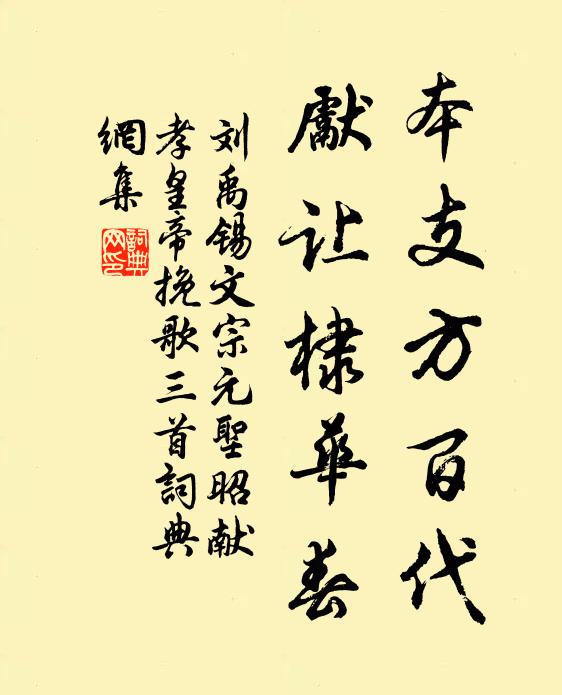 本支方百代
獻让棣華春
刘禹锡文宗元聖昭献
孝皇帝挽歌三首詞典
網集
詞典
网印